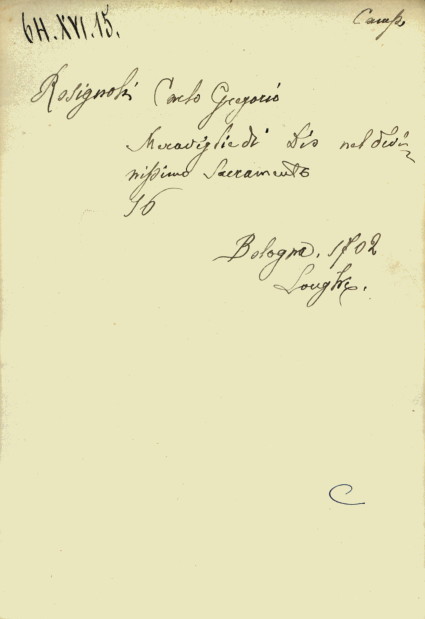 6H.XVI.15.
Camp
Rosignoli Carlo Gregorio
Meraviglie di Dio nel divi-
nissimo Sacramento
16
Bologna. 1702
Longhi.
C